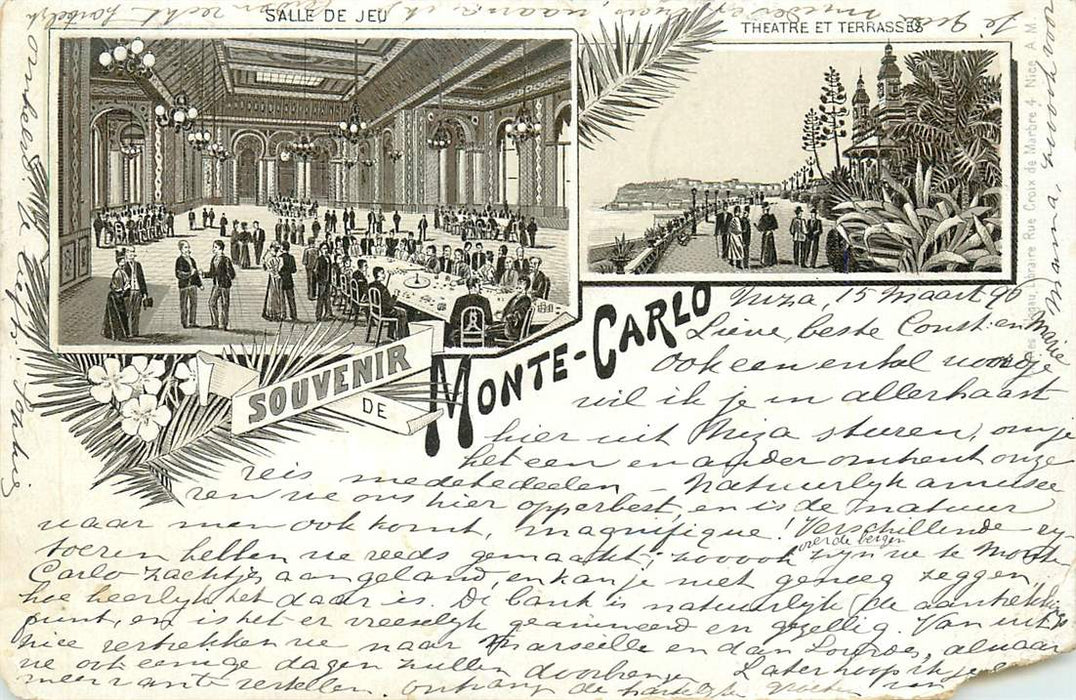 SALLE DE JEU
THEATRE ET TERRASSES
SOUVENIR
DE
MONTE-CARLO
Libraire Rue Croix de Marbre 4 Nice A.M.
Niza, 15 Maart 96
Lieve, beste Const: en Marie
Ook een enkel woordje
wil ik je in allerhaast
hier uit Niza sturen, om je
het een en ander omtrent onze
reis medetedeelen – Natuurlijk amusee
ren we ons hier opperbest, en is de natuur
waar men ook komt, magnifique! Verschillende rij-
toeren hebben we reeds gemaakt; zooook zijn we te Monte
over de bergen
Carlo zachtjes aangeland, en kan je niet genoeg zeggen,
hoe heerlijk het daar is. De bank is natuurlijk de aantrekkings
punt, en is het er vreeselijk geanimeerd en gezellig. Van uit
Nice vertrekken we naar Marseille en dan Lourdes, alwaar
we ook eenige dagen zullen doorbrengen. Later hoop ik je
meer van te vertellen. Ontvang de hartelijkste groeten van
omhelsd. Je liefh.
Je
Mama,
voor